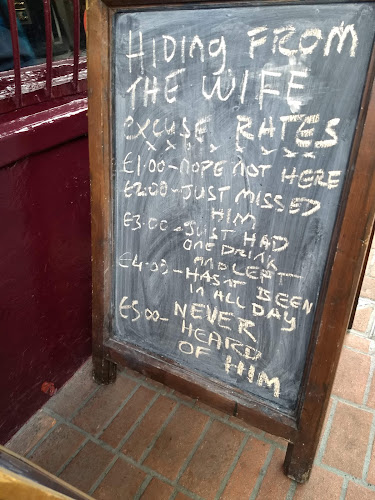 HIDING FROM
THE WIFE
EXCUSE RATES
£1.00-NOPE NOT HERE
£2.00-JUST MISSED
HIM
£3.00-JUST HAD
ONE DRINK
AND LEFT
£4.00-HASNT BEEN
IN ALL DAY
£5.00-NEVER
HEARD
OF HIM